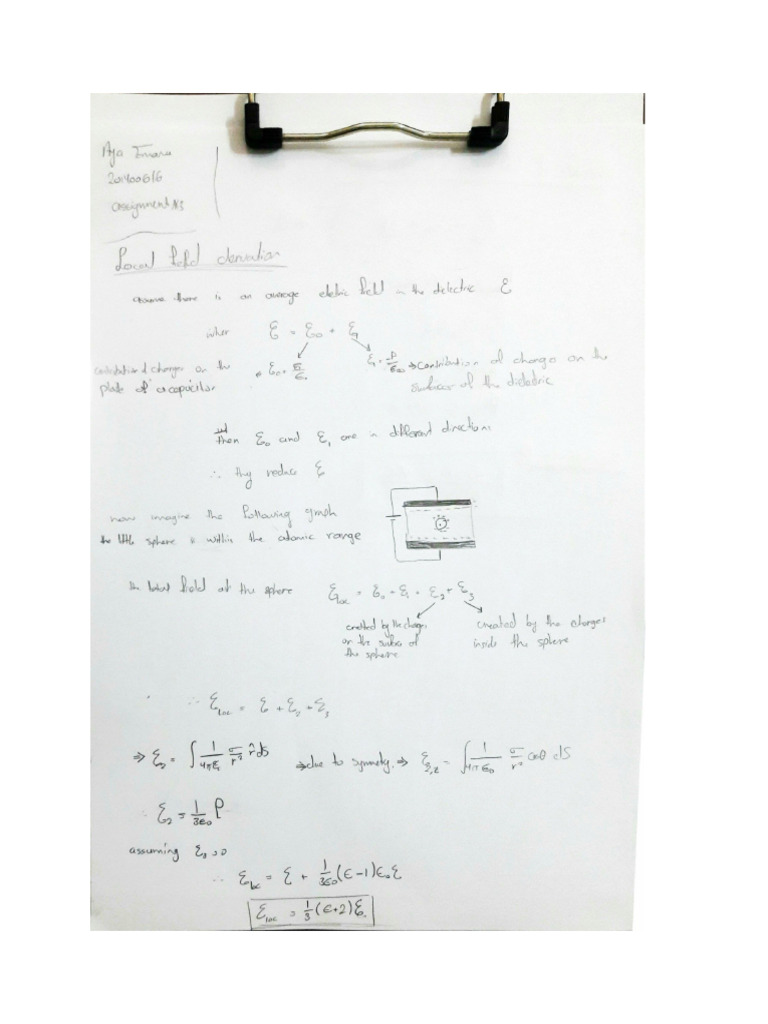 Aja Imara
201400616
assignment #3
Local field derivation
assume there is an average eletric field in the dielectric ℰ
wher ℰ = ℰ₀ + ℰ₁
contribution of charges on the plate of a capacitor
* ℰ₀ = σ/ε₀
ℰ₁ = P/ε₀ → contribution of charges on the surface of the dieletric
then ℰ₀ and ℰ₁ are in different directions
∴ thy reduce ℰ
now imagine the following graph
the little sphere is within the atomic range
the total field at the sphere ℰloc = ℰ₀ + ℰ₁ + ℰ₂ + ℰ₃
created by the charges on the surface of the sphere
created by the charges inside the sphere
∴ ℰloc = ℰ + ℰ₂ + ℰ₃
⇒ ℰ₂ = ∫ 1/4πε₀ σ/r² r̂ dS ⇒ due to symmetry ⇒ ℰ₂,z = ∫ 1/4πε₀ σ/r² cosθ dS
∴ ℰ₂ = 1/3ε₀ P
assuming ℰ₃ = 0
∴ ℰloc = ℰ + 1/3ε₀ (ϵ-1)ε₀ℰ
ℰloc = 1/3 (ϵ+2)ℰ